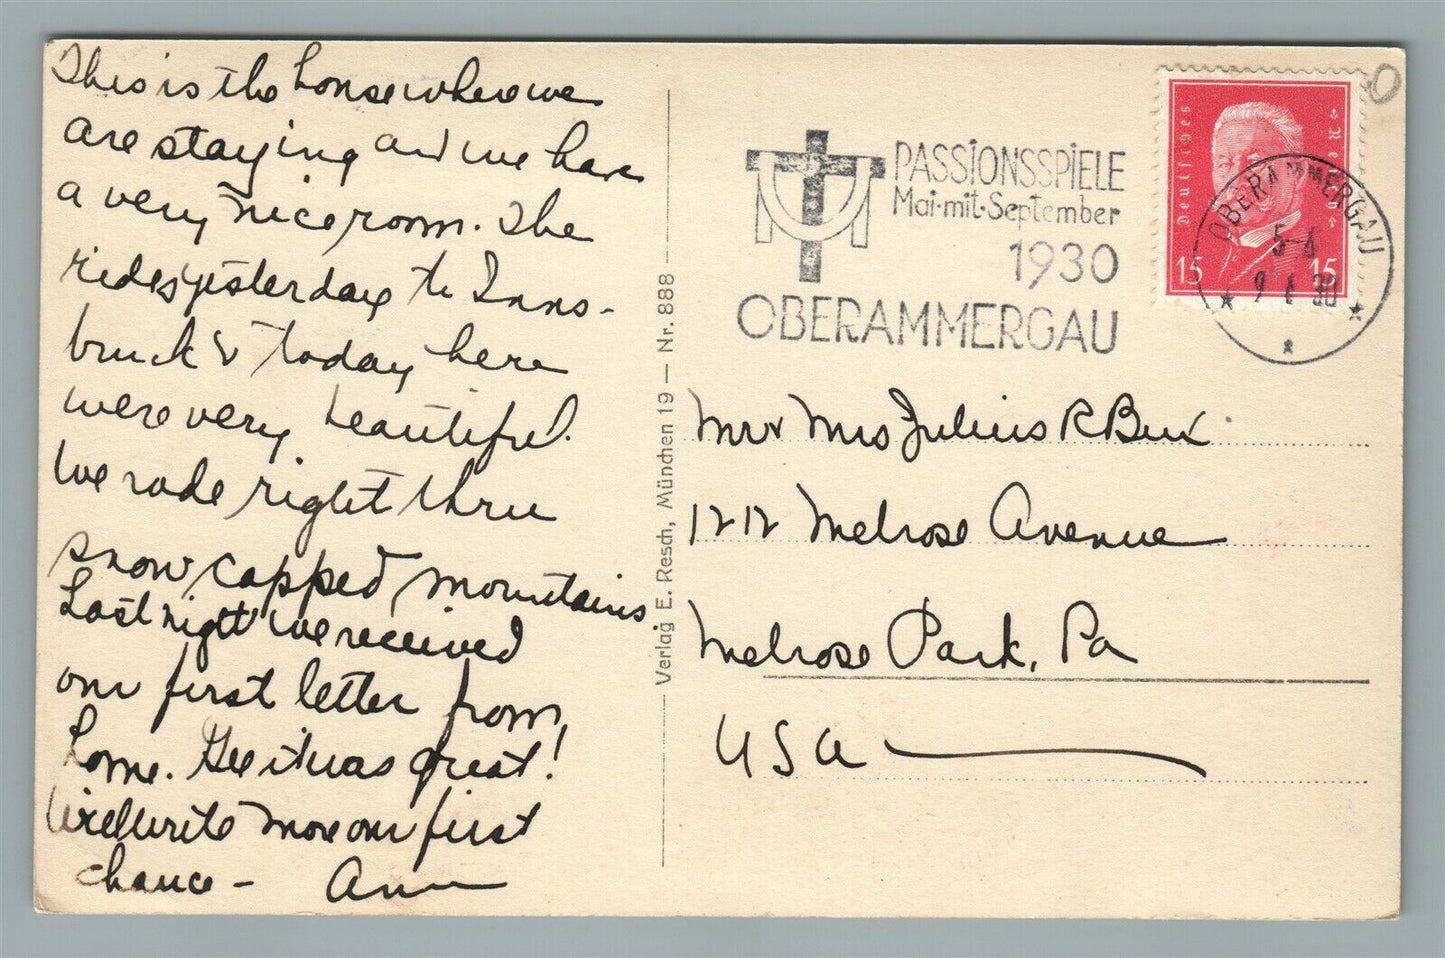 This is the house where we
are staying and we have
a very nice room. The
rides yesterday to Inns-
bruck & today here
were very beautiful.
We rode right thru
snow capped mountains
Last night we received
our first letter from
home. Gee it was great!
Will write more our first
chance - Ann
Verlag E. Resch, München 19 — Nr. 888
PASSIONSSPIELE
Mai-mit-September
1930
OBERAMMERGAU
Deutsches Reich
15 15
OBERAMMERGAU
5-6
30
Mr & Mrs Julius R
1212 Melrose Avenue
Melrose Park, Pa
USA